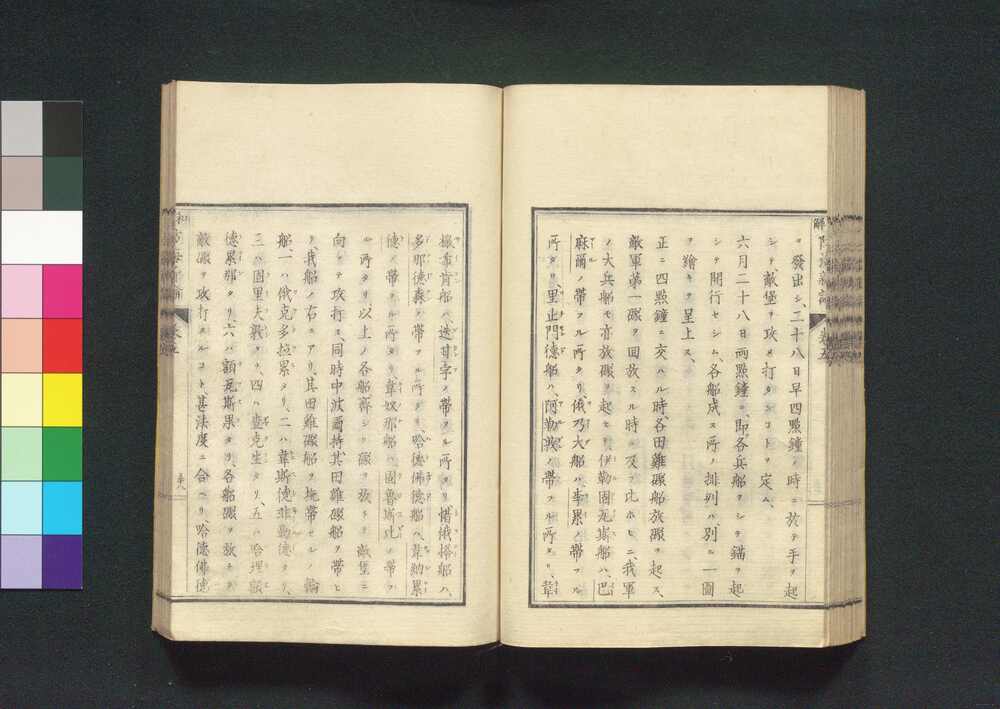 ヲ發出シ、二十八日早四點鐘ノ時ニ於テ手ヲ起
シテ敵堡ヲ攻メ打タンコトヲ定ム、
六月二十八日兩點鐘ニ、即各兵船ヲシテ錨ヲ起
シテ開行セシム、各船成ス所ノ排列ハ、別ニ一圖
ヲ繪キテ呈上ス、
正ニ四點鐘ニ交ハル時、各田雞礮船放礮ヲ起ス、
敵軍第一礮ヲ回放スル時ニ及テ比ホヒニ、我軍
ノ大兵船モ亦放礮ヲ起セリ、伊勒固瓦斯船ハ、巴
麻爾ノ帶フル所タリ、俄乃大船ハ、韋累ノ帶フル
所タリ、里止門德船ハ、阿勒茂ノ帶フル所タリ、韋
檨布肯船ハ、迭甘字ノ帶フル所タリ、惜俄搭船ハ、
多那德森ノ帶フル所タリ、哈德佛德船ハ、韋納累
德ノ帶フル所タリ、韋奴那船ハ、固魯斯比ノ帶フ
ル所タリ、以上ノ各船齊シク礮ヲ放テ、敵堡ニ
向ヒテ攻打ス、同時中波爾持、其田雞礮船ヲ帶ヒ
テ、我船ノ右ニアリ、其田雞礮船ヲ地帶セシノ輪
船、一ハ俄克多拉累タリ、二ハ韋斯德非勒德タリ、
三ハ固里夫敦タリ、四ハ查克生タリ、五ハ哈理額
德累那タリ、六ハ額瓦斯果タリ、各船礮ヲ放チテ
敵礮ヲ攻打スルコト、甚法度ニ合ヘリ、哈德佛德